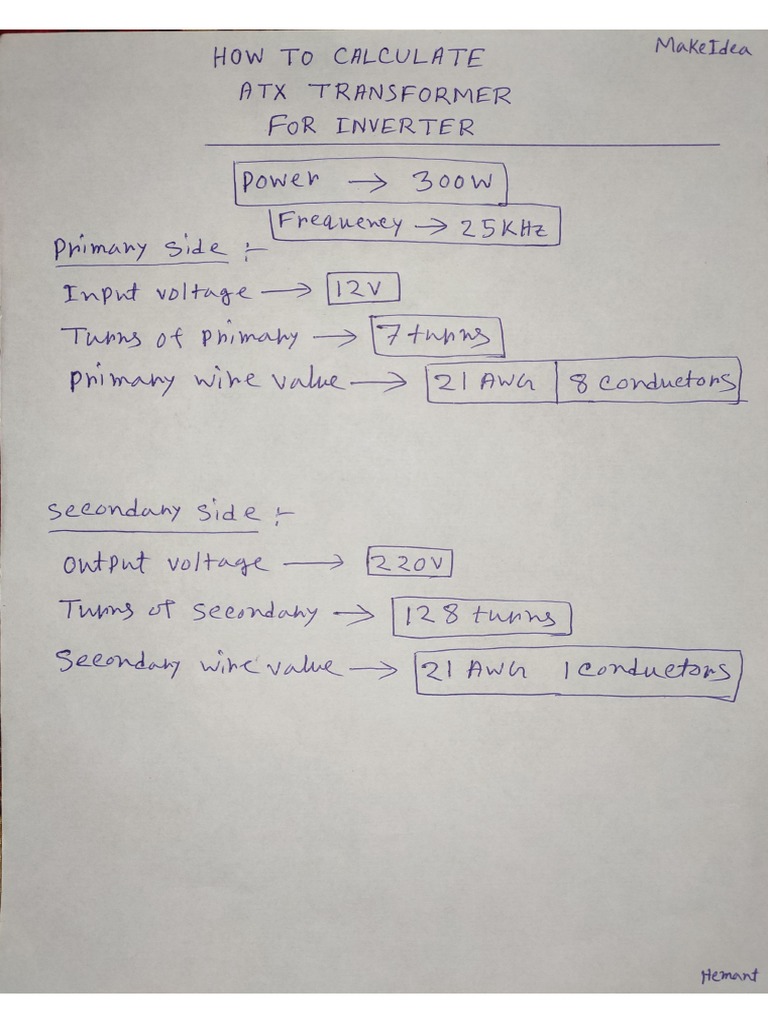 MakeIdea
HOW TO CALCULATE
ATX TRANSFORMER
FOR INVERTER
Power → 300W
Frequency → 25KHz
Primary side :-
Input voltage → 12V
Turns of primary → 7 turns
primary wire value → 21 AWG | 8 conductors
Secondary side :-
output voltage → 220V
Turns of secondary → 128 turns
Secondary wire value → 21 AWG 1 conductors
Hemant